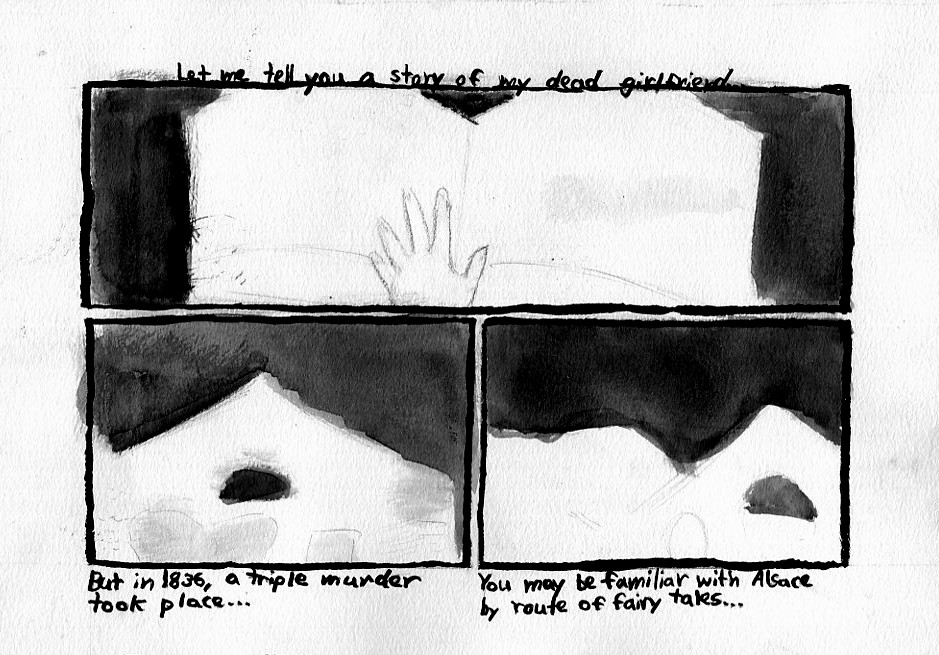 Let me tell you a story of my dead girlfriend...
But in 1836, a triple murder
took place...
You may be familiar with Alsace
by route of fairy tales...